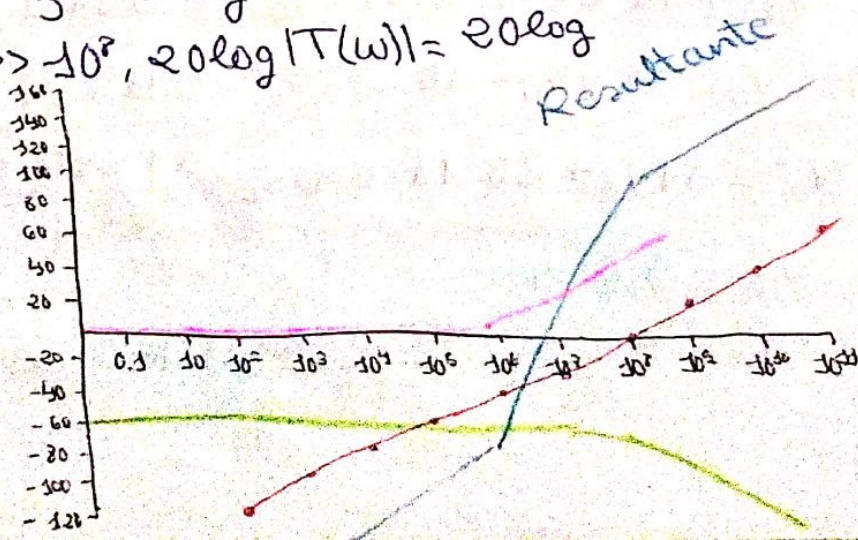 > 10⁸, 20log|T(ω)|= 20log
Resultante
160
140
120
100
80
60
40
20
-20
-40
-60
-80
-100
-120
0.1 10 10² 10³ 10⁴ 10⁵ 10⁶ 10⁷ 10⁸ 10⁹ 10¹⁰ 10¹¹